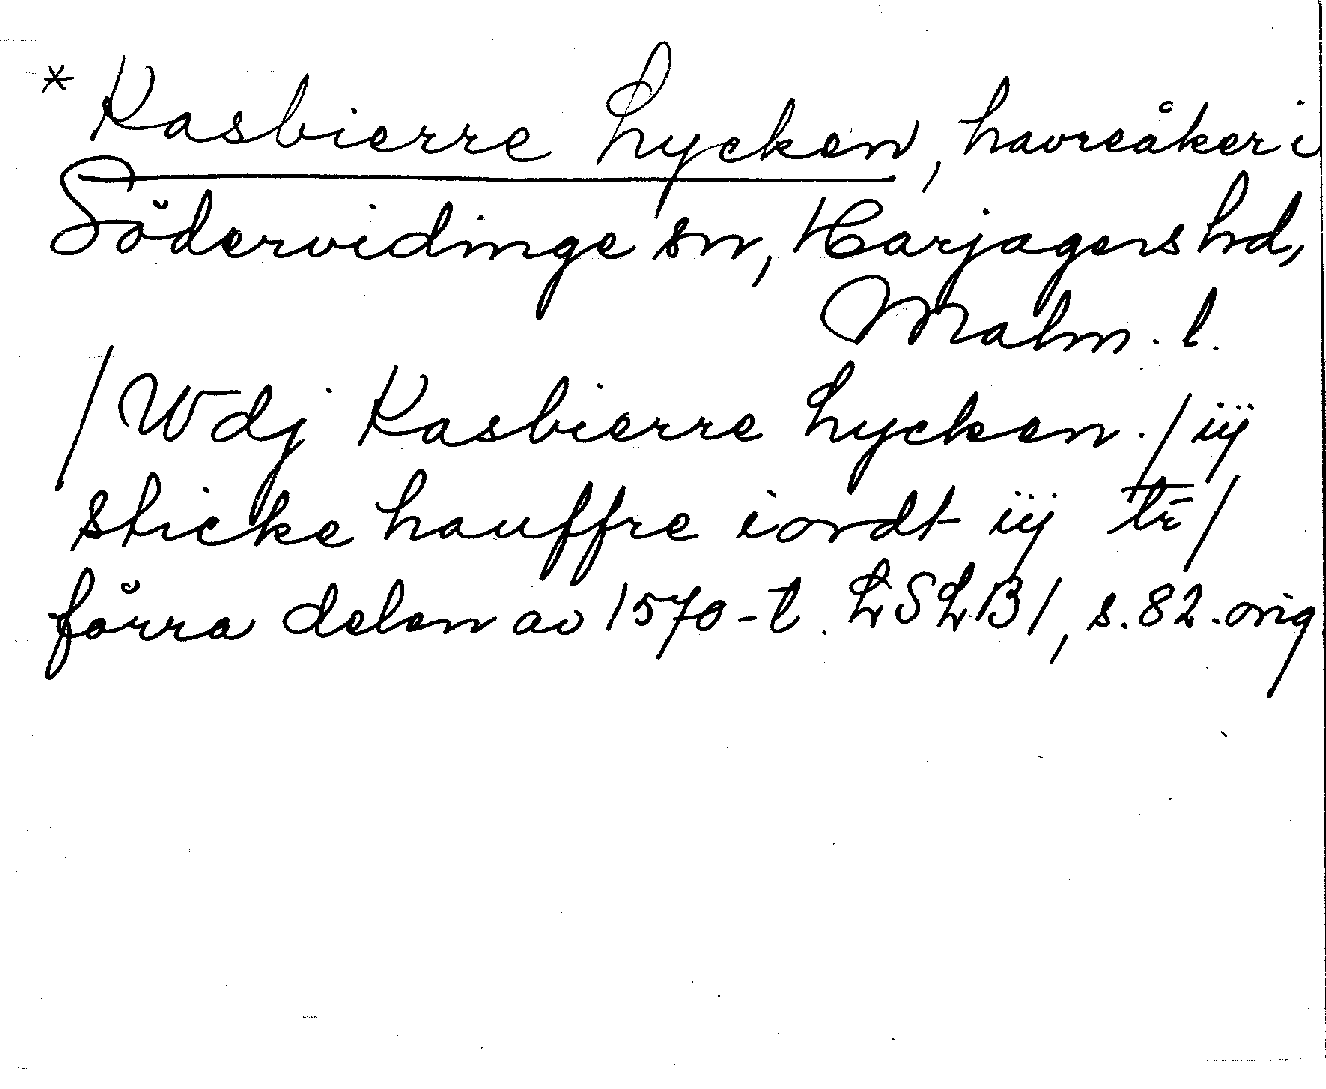 * Kasbierre Lycken, havreåker i
Södervidinge sn, Harjagers hd,
Malm. l.
/ Wdj Kasbierre Lycken. / iij
sticke hauffre iordt iij tr̄ /
förra delen av 1570-t. LSLB 1, s. 82. orig